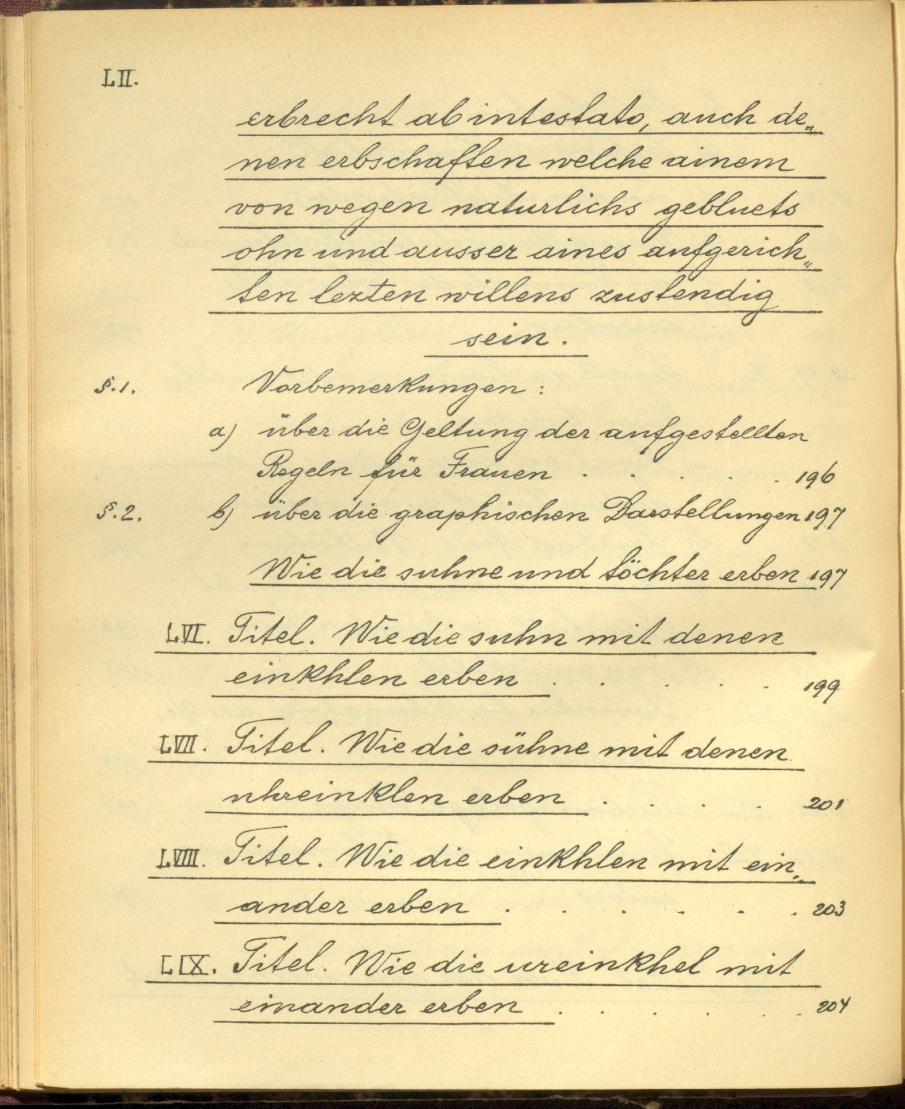 LII.
erbrecht ab intestato, auch de„
nen erbschaften welche ainem
von wegen naturlichs gebluets
ohn und ausser aines aufgerich„
ten lezten willens zustendig
sein.
§.1. Vorbemerkungen:
a) über die Geltung der aufgestellten
Regeln für Frauen . . . . . 196
§.2. b) über die graphischen Darstellungen 197
Wie die suhne und töchter erben 197
LVI. Titel. Wie die suhn mit denen
einkhlen erben . . . . 199
LVII. Titel. Wie die sühne mit denen
uhreinklen erben . . . . 201
LVIII. Titel. Wie die einkhlen mit ein„
ander erben . . . . . . 203
LIX. Titel. Wie die ureinkhel mit
einander erben . . . . . 204